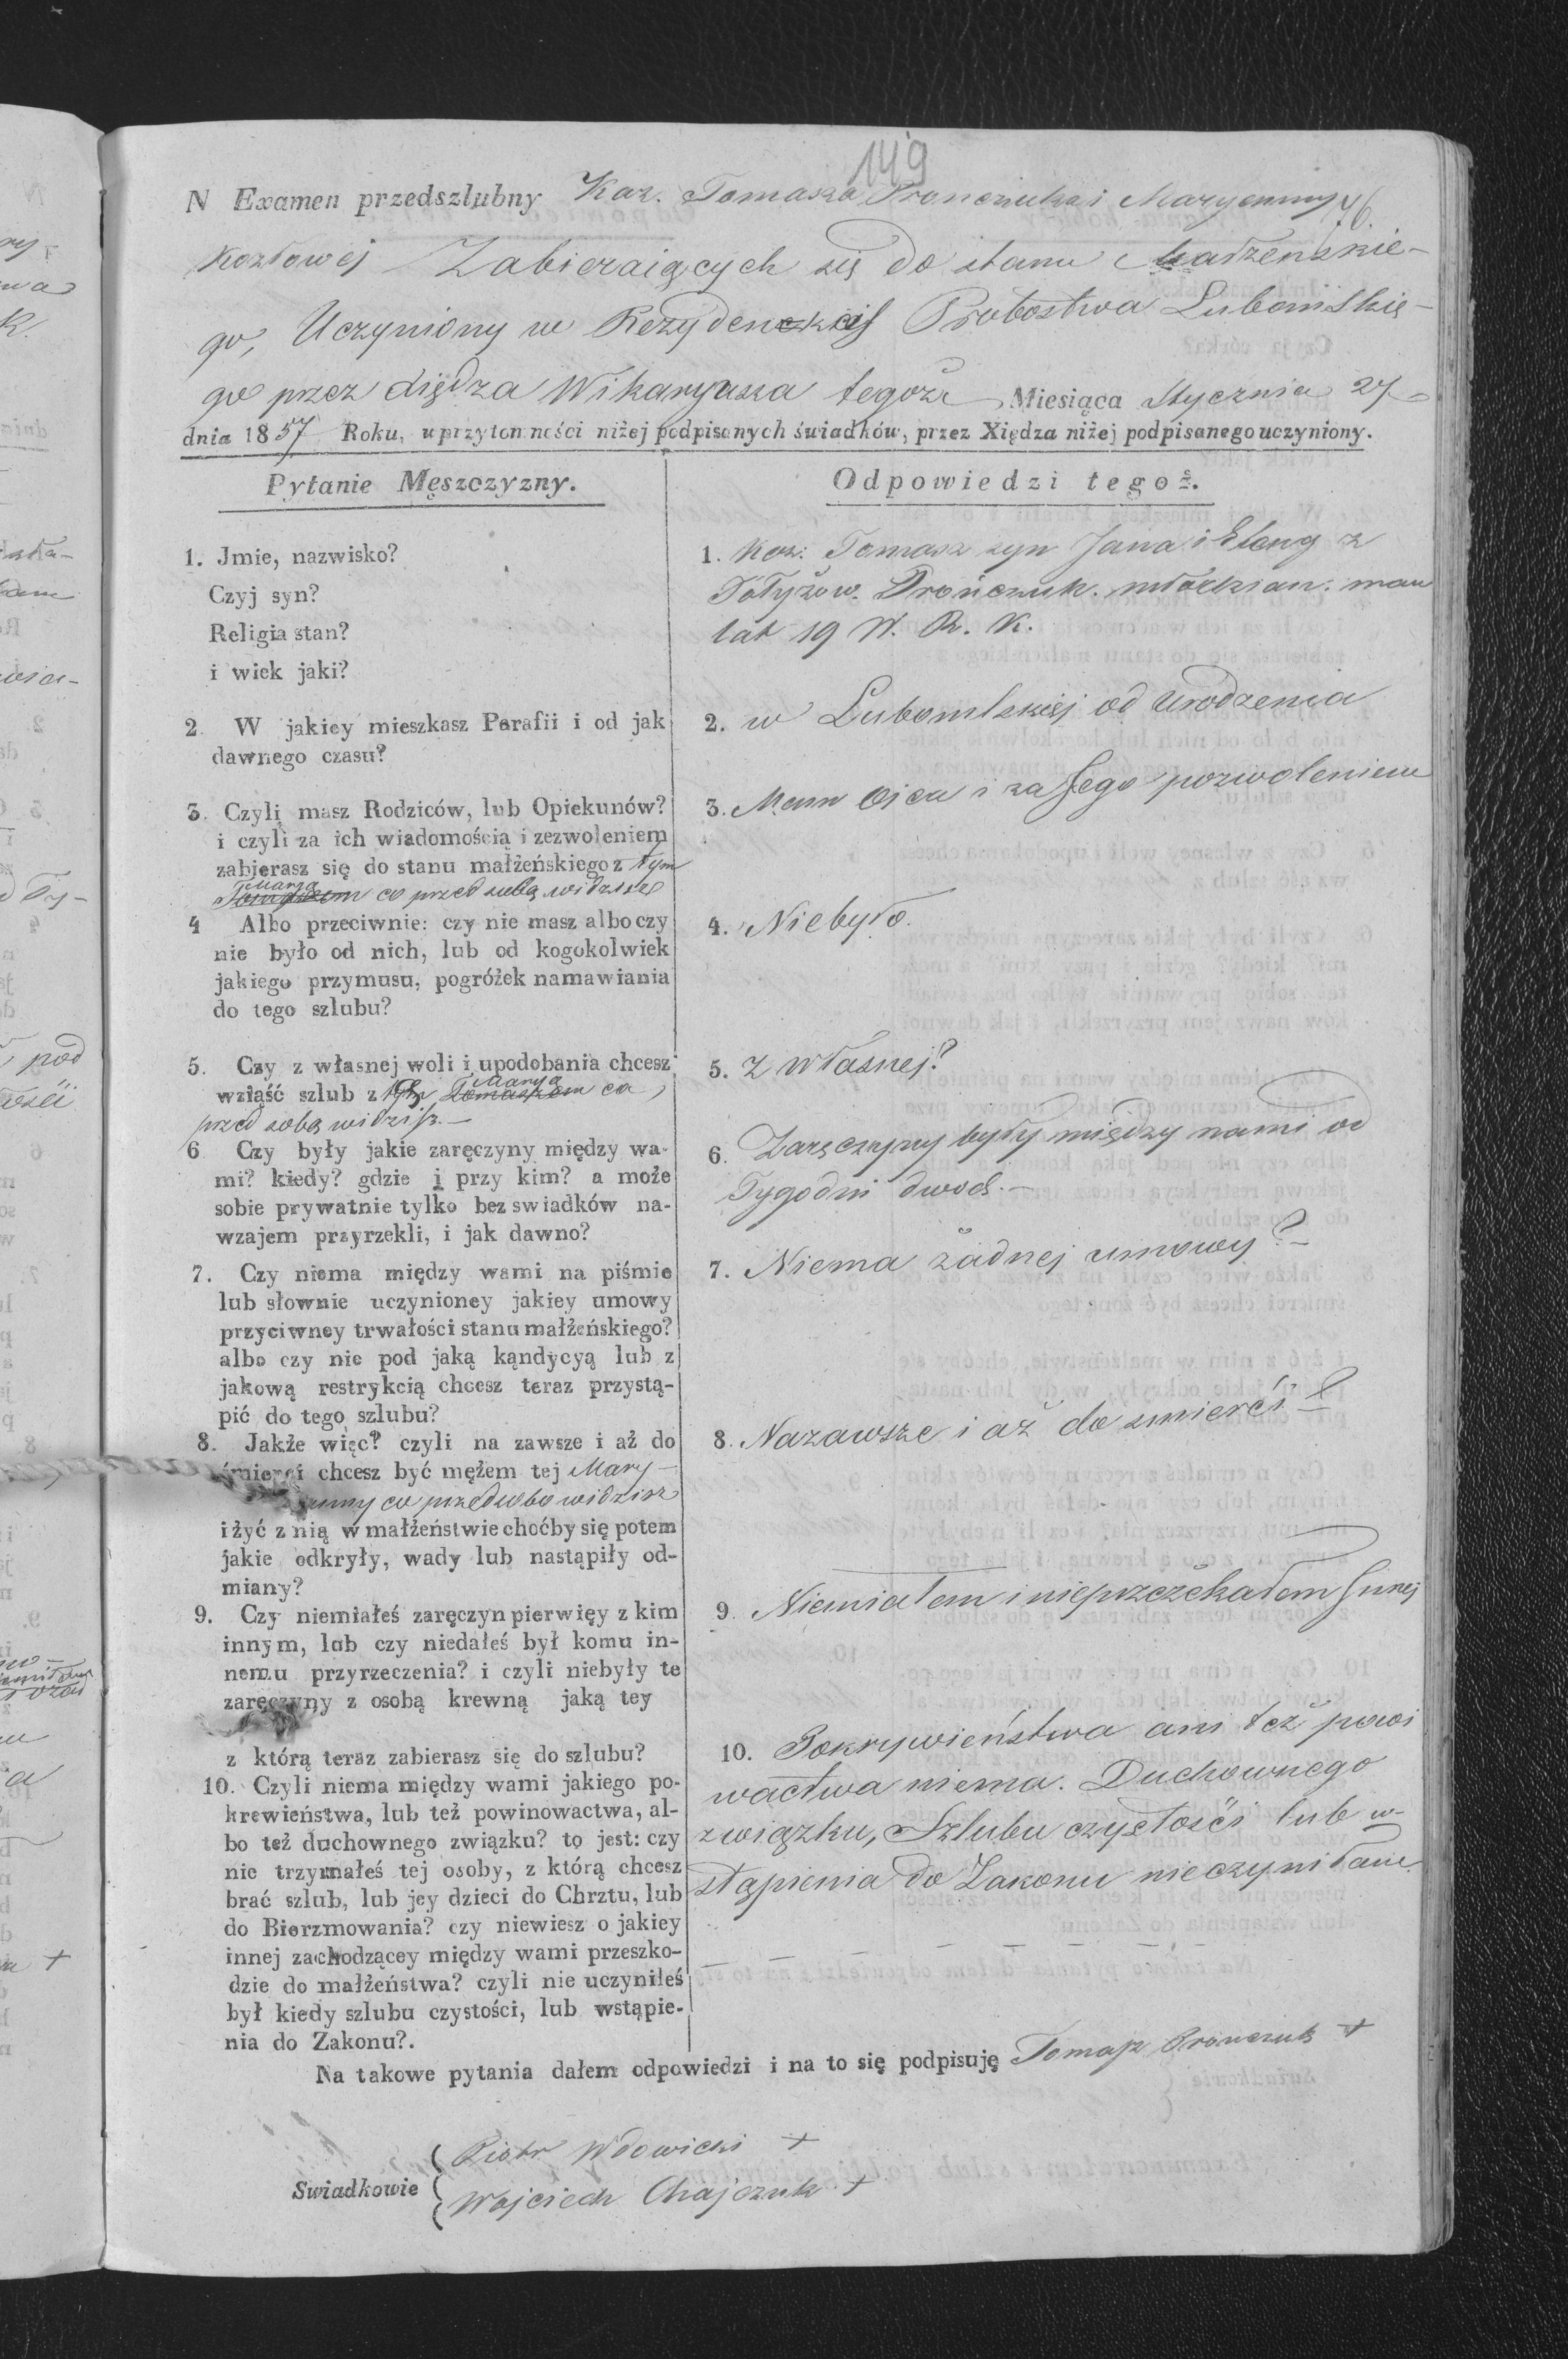 149
N Examen przedszlubny Kaz. Tomasza Pronczuka i Maryanny 76.
Kozłowej Zabieraiących się do stanu Małżenskie-
go, Uczyniony w Rezydenckcij Probostwa Lubomlskie-
go przez Xiędza Wikaryusza tegoż Miesiąca Stycznia 27
dnia 1857 Roku, w przytomności niżej podpisanych świadków, przez Xiędza niżej podpisanego uczyniony.
Pytanie Męszczyzny.
1. Jmie, nazwisko?
Czyj syn?
Religia stan?
i wiek jaki?
2. W jakiey mieszkasz Parafii i od jak
dawnego czasu?
3. Czyli masz Rodziców, lub Opiekunów?
i czyli za ich wiadomością i zezwoleniem
zabierasz się do stanu małżeńskiego z tym
Marya
Tomaszem co przed sobą widzisz
4 Albo przeciwnie: czy nie masz albo czy
nie było od nich, lub od kogokolwiek
jakiego przymusu, pogróżek namawiania
do tego szlubu?
5. Czy z własnej woli i upodobania chcesz
wziąść szlub z tym Marya Tomaszem co
przed sobą widzisz.—
6 Czy były jakie zaręczyny między wa-
mi? kiedy? gdzie i przy kim? a może
sobie prywatnie tylko bez swiadków na-
wzajem przyrzekli, i jak dawno?
7. Czy niema między wami na piśmie
lub słownie uczynioney jakiey umowy
przyciwney trwałości stanu małżeńskiego?
albo czy nie pod jaką kądycyą lub z
jakową restrykcią chcesz teraz przystą-
pić do tego szlubu?
8. Jakże więc? czyli na zawsze i aż do
śmierci chcesz być mężem tej Mary-
anny co przed sobo widzisz
i żyć z nią w małżeństwie choćby się potem
jakie odkryły, wady lub nastąpiły od-
miany?
9. Czy niemiałeś zaręczyn pierwięy z kim
innym, lub czy niedałeś był komu in-
nemu przyrzeczenia? i czyli niebyły te
zaręczyny z osobą krewną jaką tey
z którą teraz zabierasz się do szlubu?
10. Czyli niema między wami jakiego po-
krewieństwa, lub też powinowactwa, al-
bo też duchownego związku? to jest: czy
nie trzymałeś tej osoby, z którą chcesz
brać szlub, lub jey dzieci do Chrztu, lub
do Bierzmowania? czy niewiesz o jakiey
innej zachodzącey między wami przeszko-
dzie do małżeństwa? czyli nie uczyniłeś
był kiedy szlubu czystości, lub wstąpie-
nia do Zakonu?.
Odpowiedzi tegoż.
1. Kaz: Tomasz syn Jana i Eleny z
Prończuk. młodzian. mam
lat 19 W. R. K.
2. w Lubomlskiej od urodzenia
3. Mam Ojca i za Jego pozwoleniem
4. Niebyło.
5. z własnej?
6. Zaręczyny były między nami od
Tygodni dwoch.—
7. Niema żadnej umowy?—
8. Nazawsze i aż do smierći
9. Niemiałem i nieprzczekałem Innej
10. Pokrywieństwa ani też powi
wactwa niema. Duchownego
związku, Szlubu czystośći lub w-
stąpienia do Zakonu nieczyniłam.
Na takowe pytania dałem odpowiedzi i na to się podpisuję Tomasz Pronczuk +
Swiadkowie
Piotr Wdowicki +
Wojciech Chajczuk +